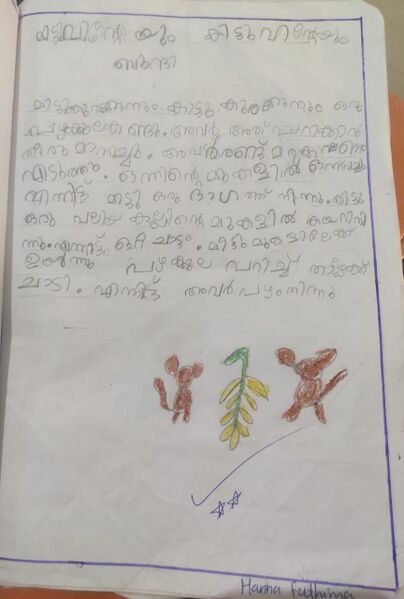 മിട്ടുവിന്റേയും കിട്ടുവിന്റേയും
ബുദ്ധി
മിട്ടുക്കുരങ്ങനും കിട്ടു കുരങ്ങനും ഒരു
പഴക്കുല കണ്ടു. അവർ അത് പറിക്കാൻ
തീരുമാനിച്ചു. അവർ രണ്ട്
എടുത്തു. ഒന്നിന്റെ മുകളിൽ ഒന്ന് വച്ചു
എന്നിട്ട് മിട്ടു ഒരു ഭാഗത്ത് നിന്നു. കിട്ടു
ഒരു വലിയ കല്ലിന്റെ മുകളിൽ കയറി നി
ന്നു. എന്നിട്ട് ഒറ്റ ചാട്ടം. മിട്ടു മുകളിലേക്ക്
ഉയർന്നു പഴക്കുല പറിച്ച് താഴേക്ക്
ചാടി. എന്നിട്ട് അവർ പഴം തിന്നു.
Hanna Fathima